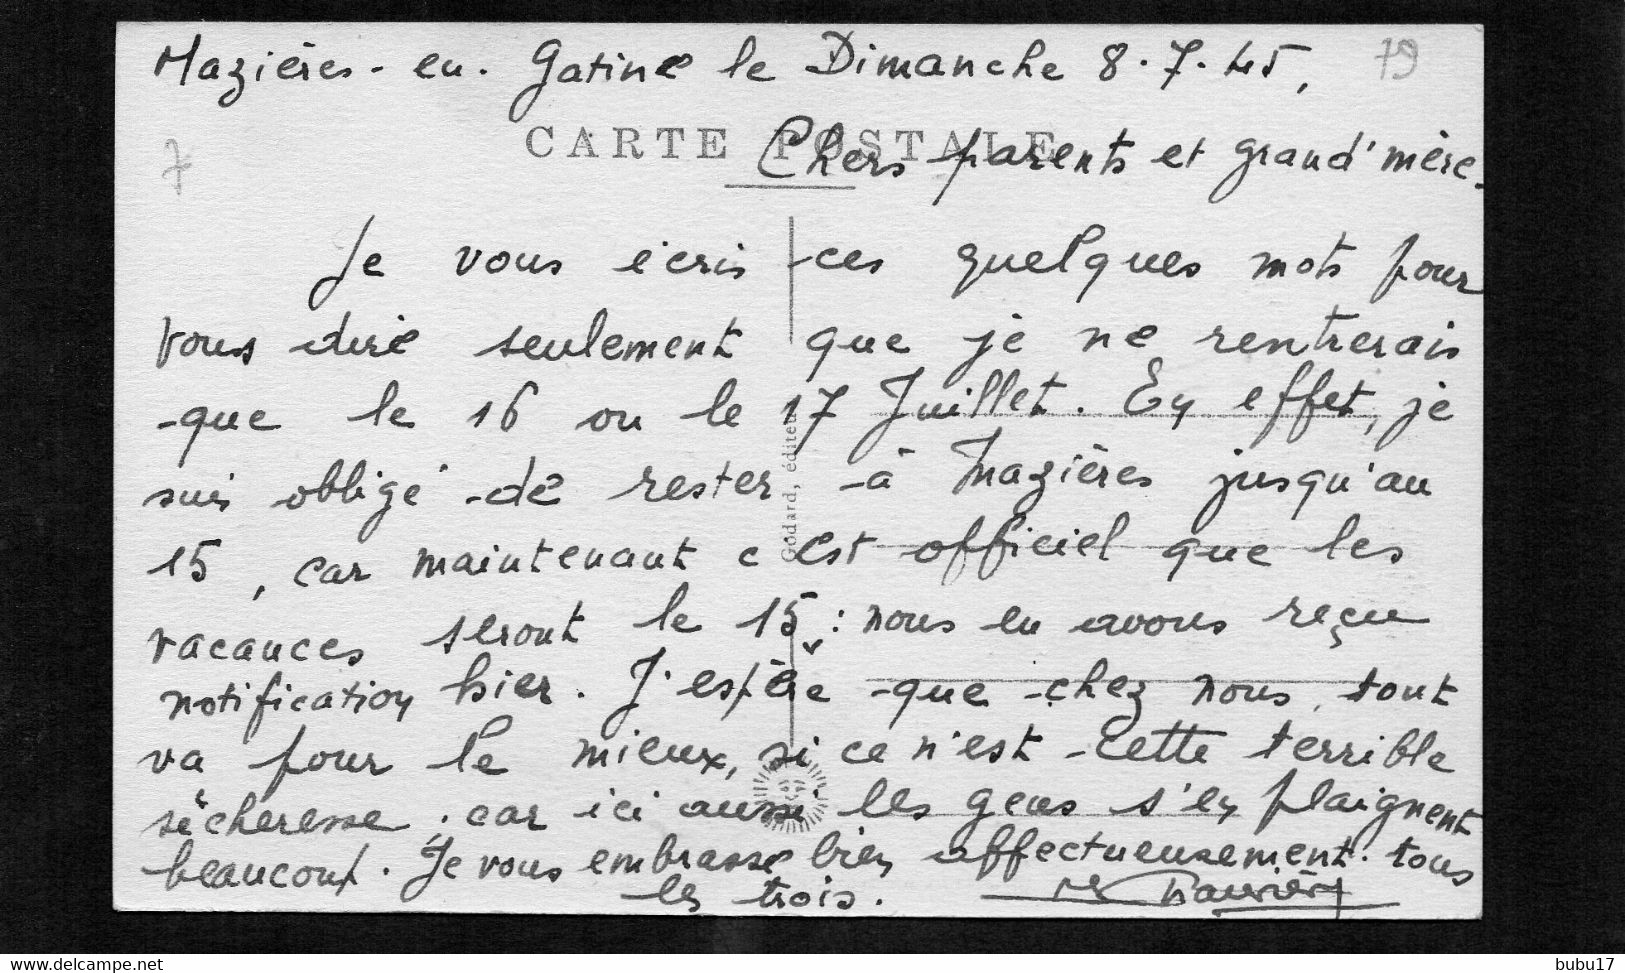 Mazières-en-Gatine le Dimanche 8.7.45,
79
CARTE POSTALE
7
Chers parents et grand'mère.
Je vous écris ces quelques mots pour
vous dire seulement que je ne rentrerais
que le 16 ou le 17 Juillet. En effet, je
suis obligé de rester à Mazières jusqu'au
15, car maintenant c'est officiel que les
vacances seront le 15 : nous en avons reçu
notification hier. J'espère que chez nous, tout
va pour le mieux, si ce n'est cette terrible
sécheresse, car ici aussi les gens s'en plaignent
beaucoup. Je vous embrasse bien affectueusement tous
les trois.
Godard, éditeur
delcampe.net
bubu17